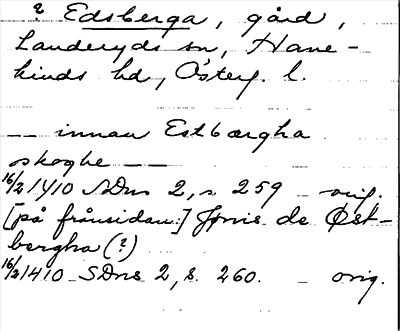 ? Edsberga, gård,
Landeryds sn, Hane-
kinds hd, Österg. l.
-- innan Estbærgha
skoghe --
16/2 1410 SDns 2, s 259 - orig.
[på frånsidan:] Jønis de Øst-
bergha (?)
16/2 1410 SDns 2, s. 260. - orig.